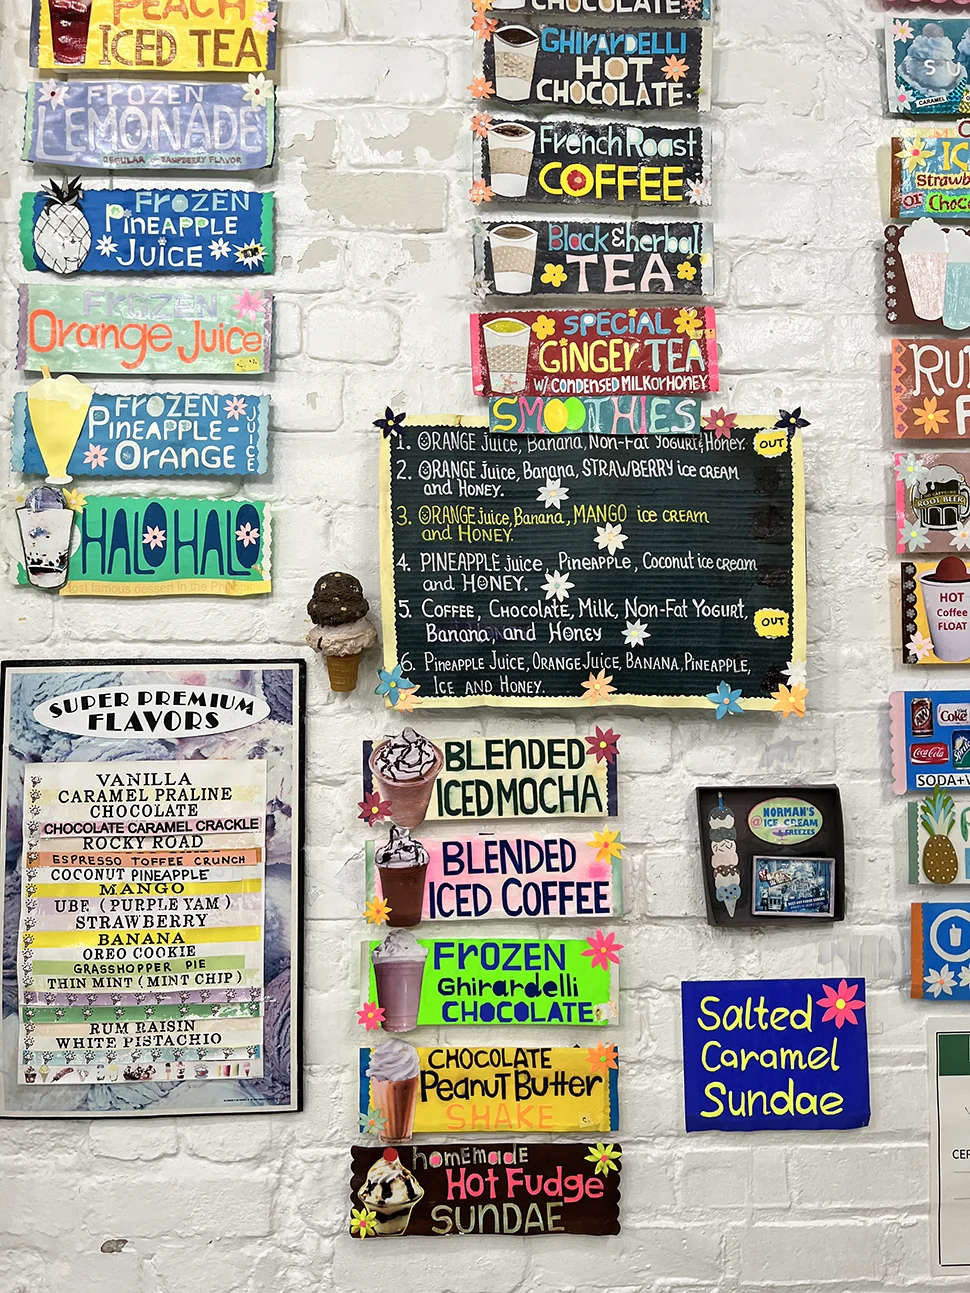 PEACH
ICED TEA
FROZEN
LEMONADE
REGULAR or RASPBERRY FLAVOR
FROZEN
PINEAPPLE
JUICE
FROZEN
Orange Juice
FROZEN
PINEAPPLE-
Orange
JUICE
HALO HALO
most famous dessert in the
SUPER PREMIUM
FLAVORS
VANILLA
CARAMEL PRALINE
CHOCOLATE
CHOCOLATE CARAMEL CRACKLE
ROCKY ROAD
ESPRESSO TOFFEE CRUNCH
COCONUT PINEAPPLE
MANGO
UBE (PURPLE YAM)
STRAWBERRY
BANANA
OREO COOKIE
GRASSHOPPER PIE
THIN MINT (MINT CHIP)
RUM RAISIN
WHITE PISTACHIO
CHOCOLATE
GHIRARDELLI
HOT
CHOCOLATE.
French Roast
COFFEE
Black & herbal
TEA
SPECIAL
GINGER TEA
W/ CONDENSED MILK or HONEY
SMOOTHIES
1. ORANGE Juice, Banana, Non-Fat Yogurt, Honey. OUT
2. ORANGE Juice, Banana, STRAWBERRY ice CREAM
and HONEY.
3. ORANGE Juice, Banana, MANGO ice cream
and HONEY.
4. PINEAPPLE Juice, Pineapple, Coconut ice cream
and HONEY.
5. COFFEE, Chocolate, Milk, Non-Fat Yogurt,
Banana, and Honey OUT
6. Pineapple Juice, ORANGE Juice, BANANA, PINEAPPLE,
ICE AND HONEY.
BLENDED
ICED MOCHA
BLENDED
ICED COFFEE
FROZEN
Ghirardelli
CHOCOLATE
CHOCOLATE
Peanut Butter
SHAKE
homemade
Hot Fudge
SUNDAE
@ NORMAN'S
ICE CREAM
+ FREEZES
Salted
Caramel
Sundae
SU
CARAMEL
IC
Strawb
or Choco
RU
F
NO CAFFEINE
ROOT BEER
HOT
Coffee
FLOAT
Diet
Coke
Coca-Cola
Sprite
SODA+W
CER